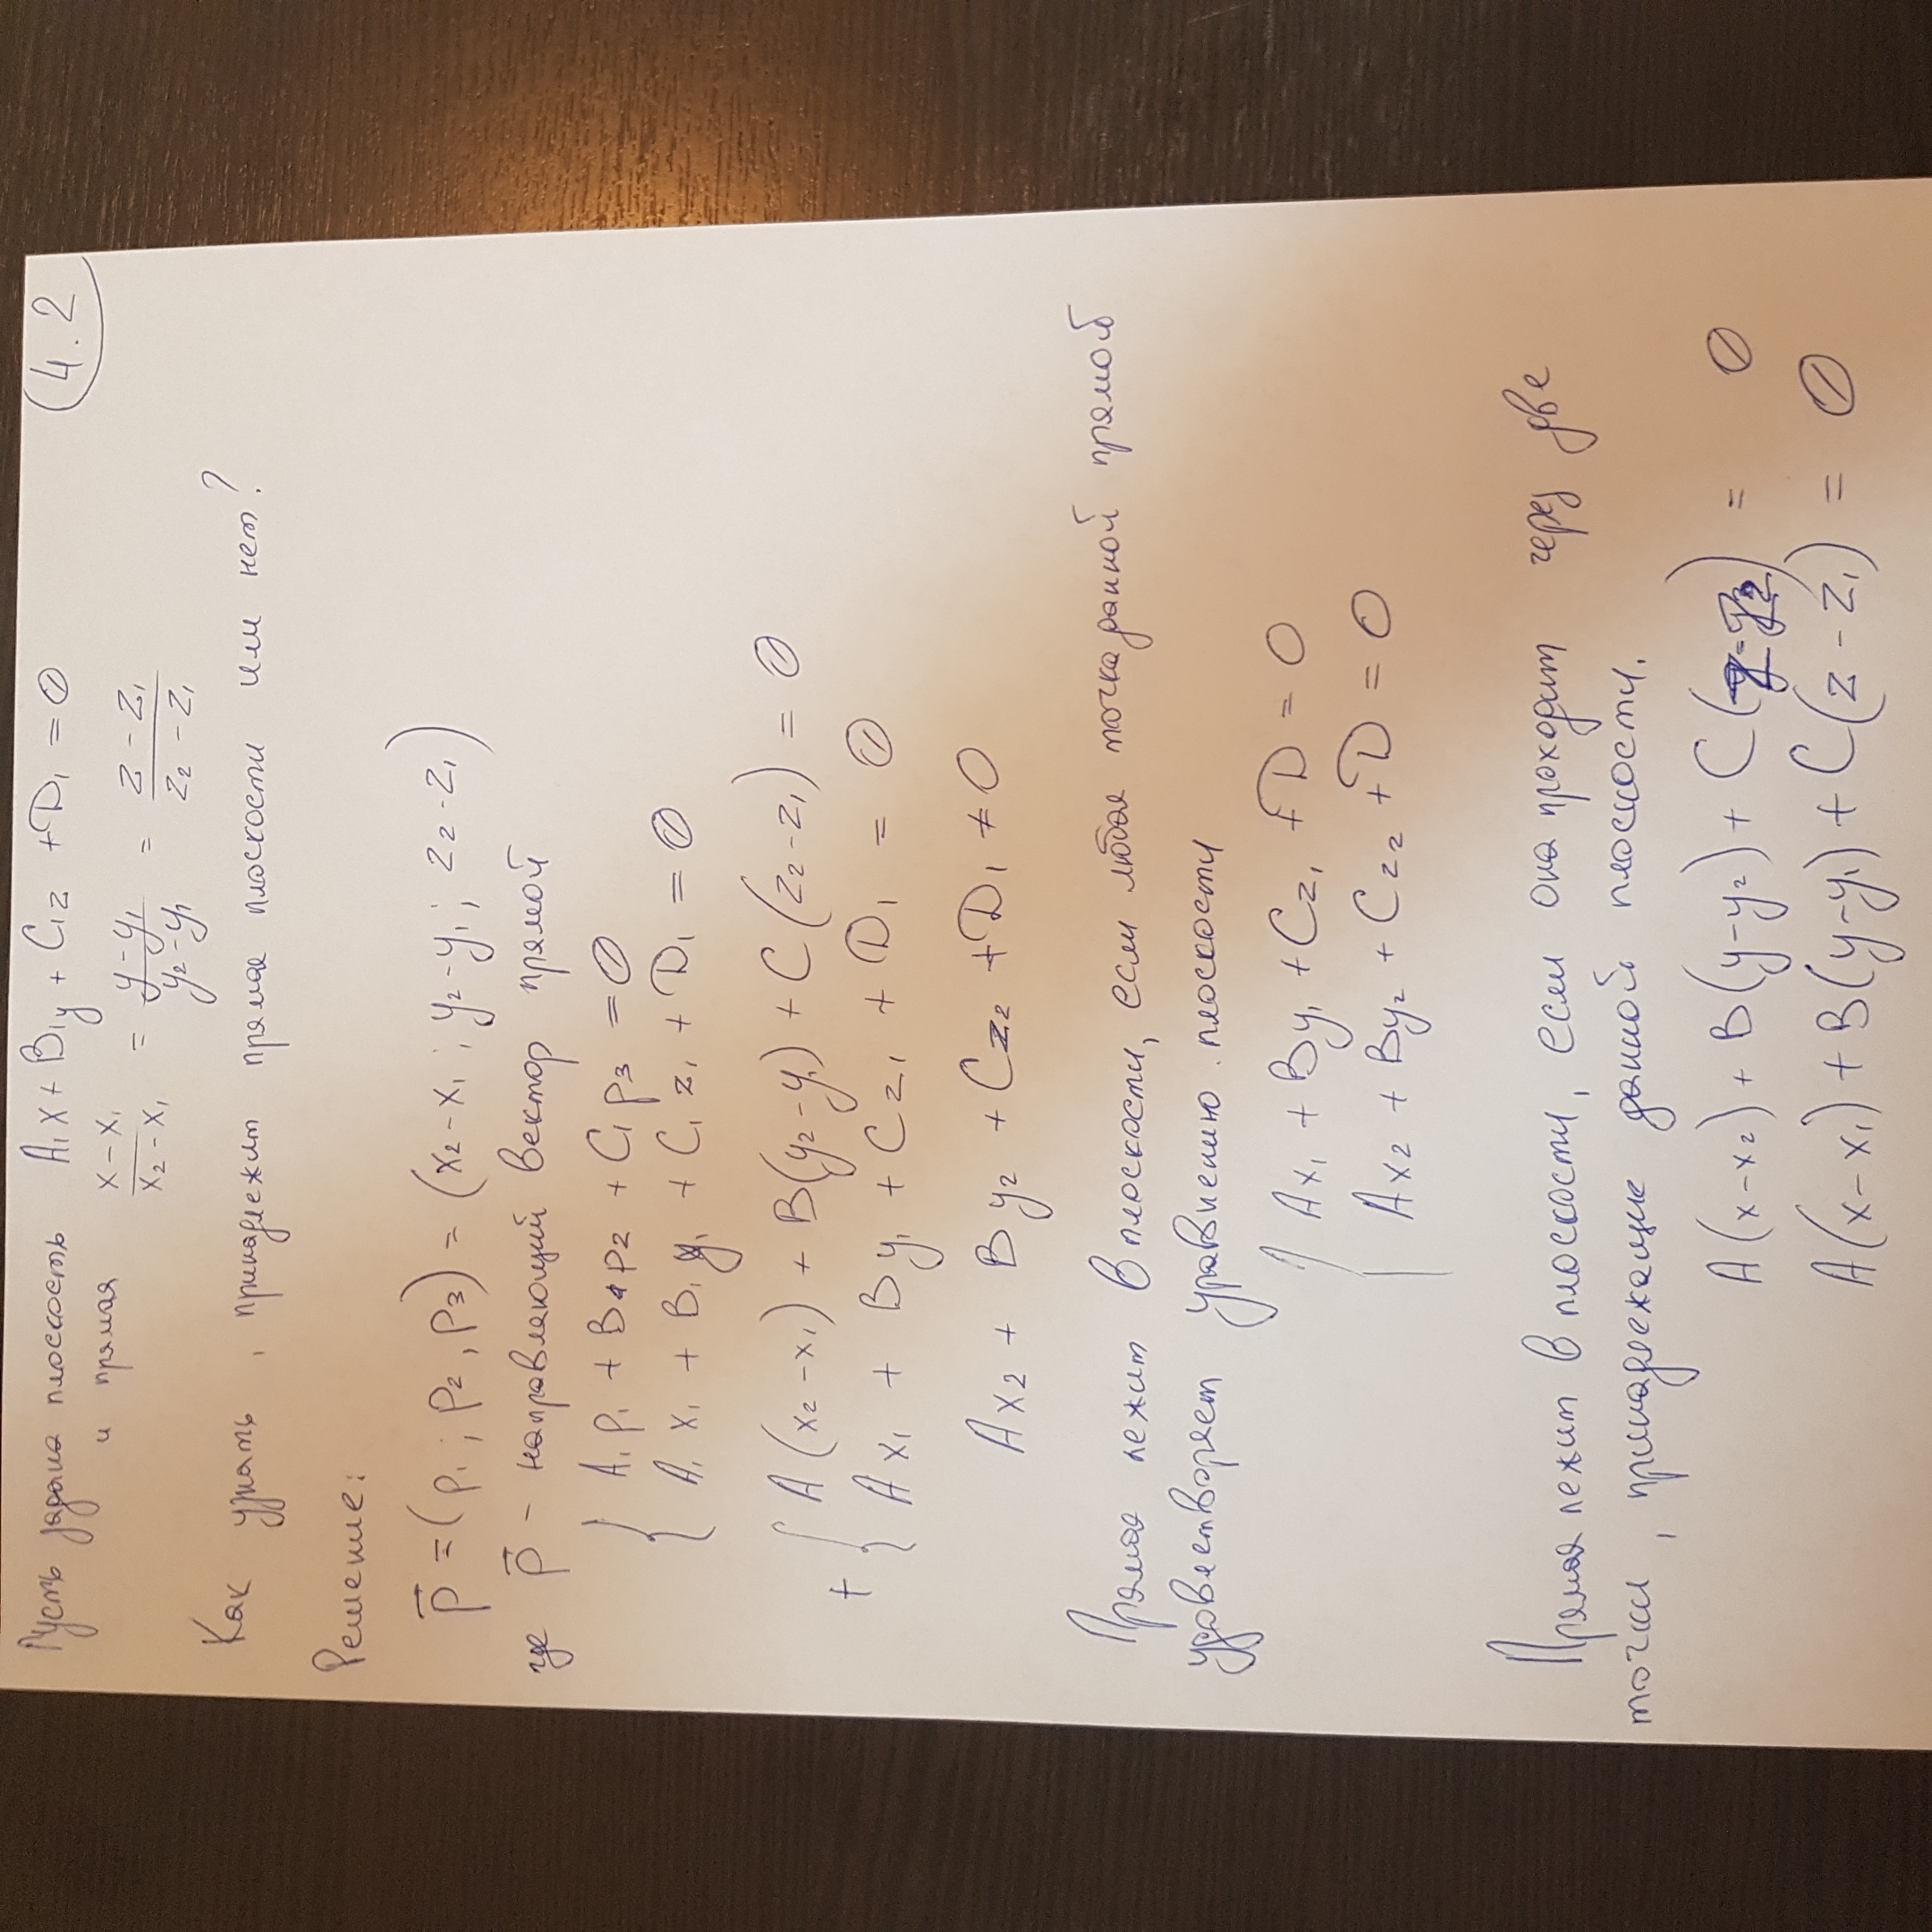 Пусть задана плоскость A₁x + B₁y + C₁z + D₁ = 0
4.2
и прямая (x - x₁)/(x₂ - x₁) = (y - y₁)/(y₂ - y₁) = (z - z₁)/(z₂ - z₁)
Как узнать, принадлежит прямая плоскости или нет?
Решение:
p⃗ = (p₁; p₂, p₃) = (x₂ - x₁; y₂ - y₁; z₂ - z₁)
где p⃗ - направляющий вектор прямой
A₁p₁ + B₁p₂ + C₁p₃ = 0
A₁x₁ + B₁y₁ + C₁z₁ + D₁ = 0
+ { A(x₂ - x₁) + B(y₂ - y₁) + C(z₂ - z₁) = 0
Ax₁ + By₁ + Cz₁ + D₁ = 0
Ax₂ + By₂ + Cz₂ + D₁ ≠ 0
Прямая лежит в плоскости, если любая точка данной прямой
удовлетворяет уравнению плоскости
Ax₁ + By₁ + Cz₁ + D = 0
Ax₂ + By₂ + Cz₂ + D = 0
Прямая лежит в плоскости, если она проходит через две
точки, принадлежащие данной плоскости.
A(x - x₂) + B(y - y₂) + C(z - z₂) = 0
A(x - x₁) + B(y - y₁) + C(z - z₁) = 0